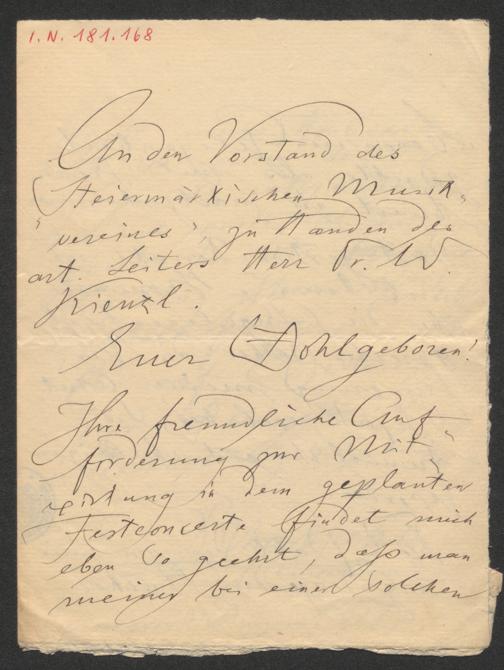 I. N. 181.168
An den Vorstand des
Steiermärkischen Musik-
"vereines" zu Handen des
art. Leiters Herr Dr. W.
Kienzl.
Euer Wohlgeboren!
Ihre freundliche Auf-
forderung zur Mit-
wirkung in dem geplanten
Festconcerte findet mich
eben so geehrt, daß man
meiner bei einer solchen